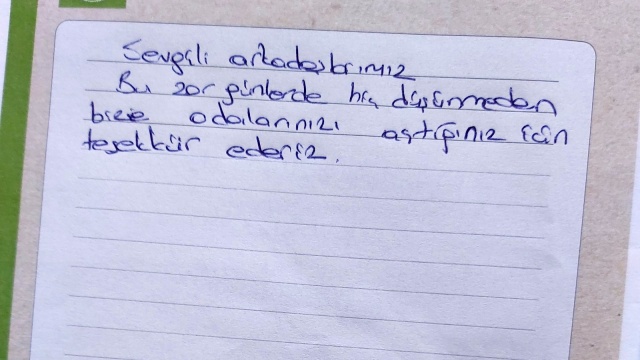 Sevgili arkadaşlarımız
Bu zor günlerde hiç düşünmeden
bize odalarınızı açtığınız için
teşekkür ederiz.